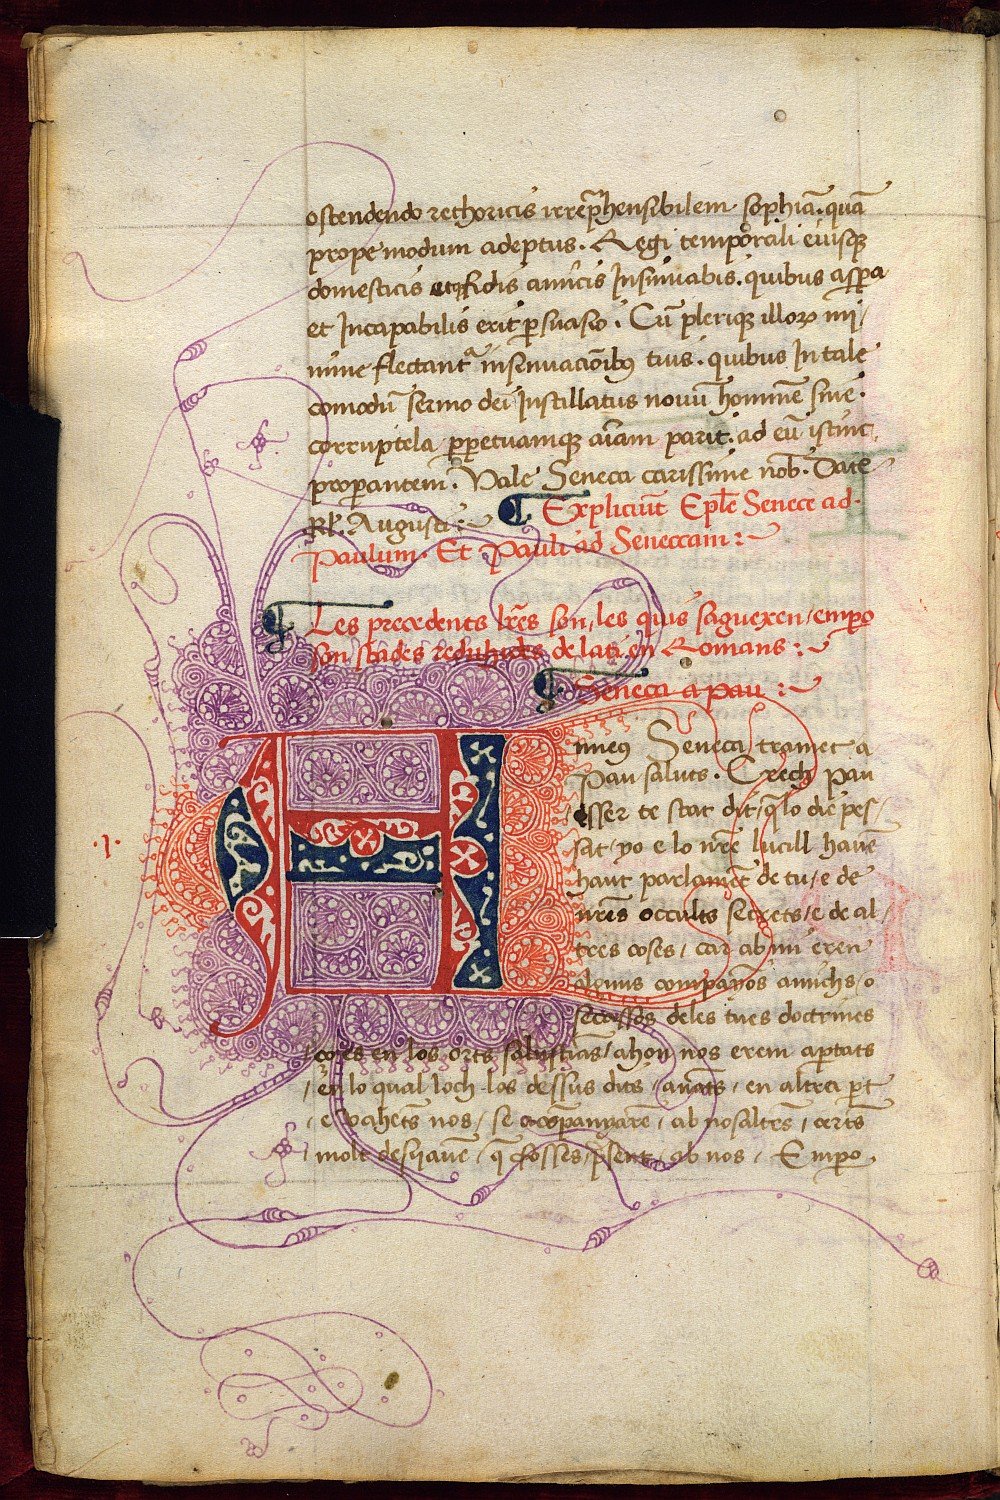 ostendendo rethoricis irrep̃hensibilem sophiã. quã
prope modum adeptus. Regi temporali eiusq̃
domesticis atq̃ fidis amicis Insinuabis. quibus asp̃a
et Incapabilis erit p̃suasio. Cũ pleriq̃ illoꝝ mi/
nime flectantᷣ insinuacionibꝯ tuis. quibus In tale
comodũ sermo dei Instillatus nouũ hominẽ sine.
corruptela p̲petuamq̃ aĩam parit. ad eũ istinc
properantem. Vale Seneca carissime nob̃. Date
kl̃. Augusti:~
¶ Expliciũt Epl̃e Senece ad.
Paulum. Et Pauli ad Seneccam:~
¶ Les precedents lr̃es son, les quis saguexen/ emp̲o
son stades reduhides de lati en Romans:~
¶ Seneca a pau:~
.1.
Anneꝯ Seneca tramet a
Pau saluts. Crech pau
esser te stat dit/ q̃ lo die pes/
sat yo e lo nr̃e lucill hauẽ
haut parlamẽt de tu/ e de
nr̃es occults secrets/ e de al/
tres coses/ car ab mi eren
alguns companyõs amichs/ o
secassos deles tues doctrines
coses en los orts salustians/ ahon nos erem apartats
en lo qual loch los dessus dits/ anãts/ en altra p̲t
e vahets nos/ se acõpanyarẽ/ ab nosaltrẽs/ certs
molt desijauẽ/ q̃ fosses p̃sent/ ab nos/ Emp̲o.